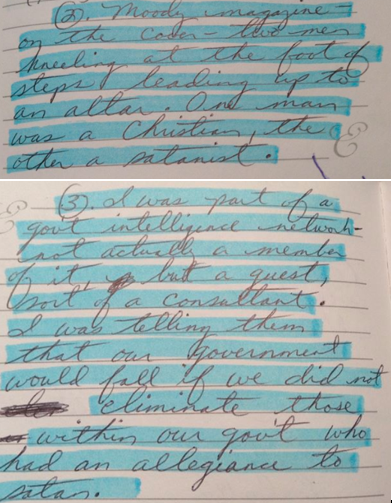 (2). Moody magazine -
on the cover - two men
kneeling at the foot of
steps leading up to
an altar. One man
was a Christian, the
other a satanist.
(3). I was part of a
gov't intelligence network-
not actually a member
of it, but a guest,
sort of a consultant.
I was telling them
that our government
would fall if we did not
eliminate those
within our gov't who
had an allegiance to
satan.